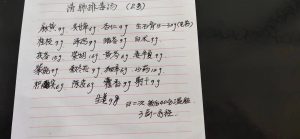 清肺排毒汤 (巳亥)
麻黄9g 炙甘草6g 杏仁9g 生石膏15-30g(先煎)
桂枝9g 泽泻9g 猪苓9g 白术9g
茯苓15g 柴胡16g 黄芩6g 姜半夏9g
紫菀9g 款冬花9g 细辛6g 山药12g
枳实6g 陈皮6g 藿香9g 射干9g
生姜9g 日二次 饭后40分温服
3剂一疗程